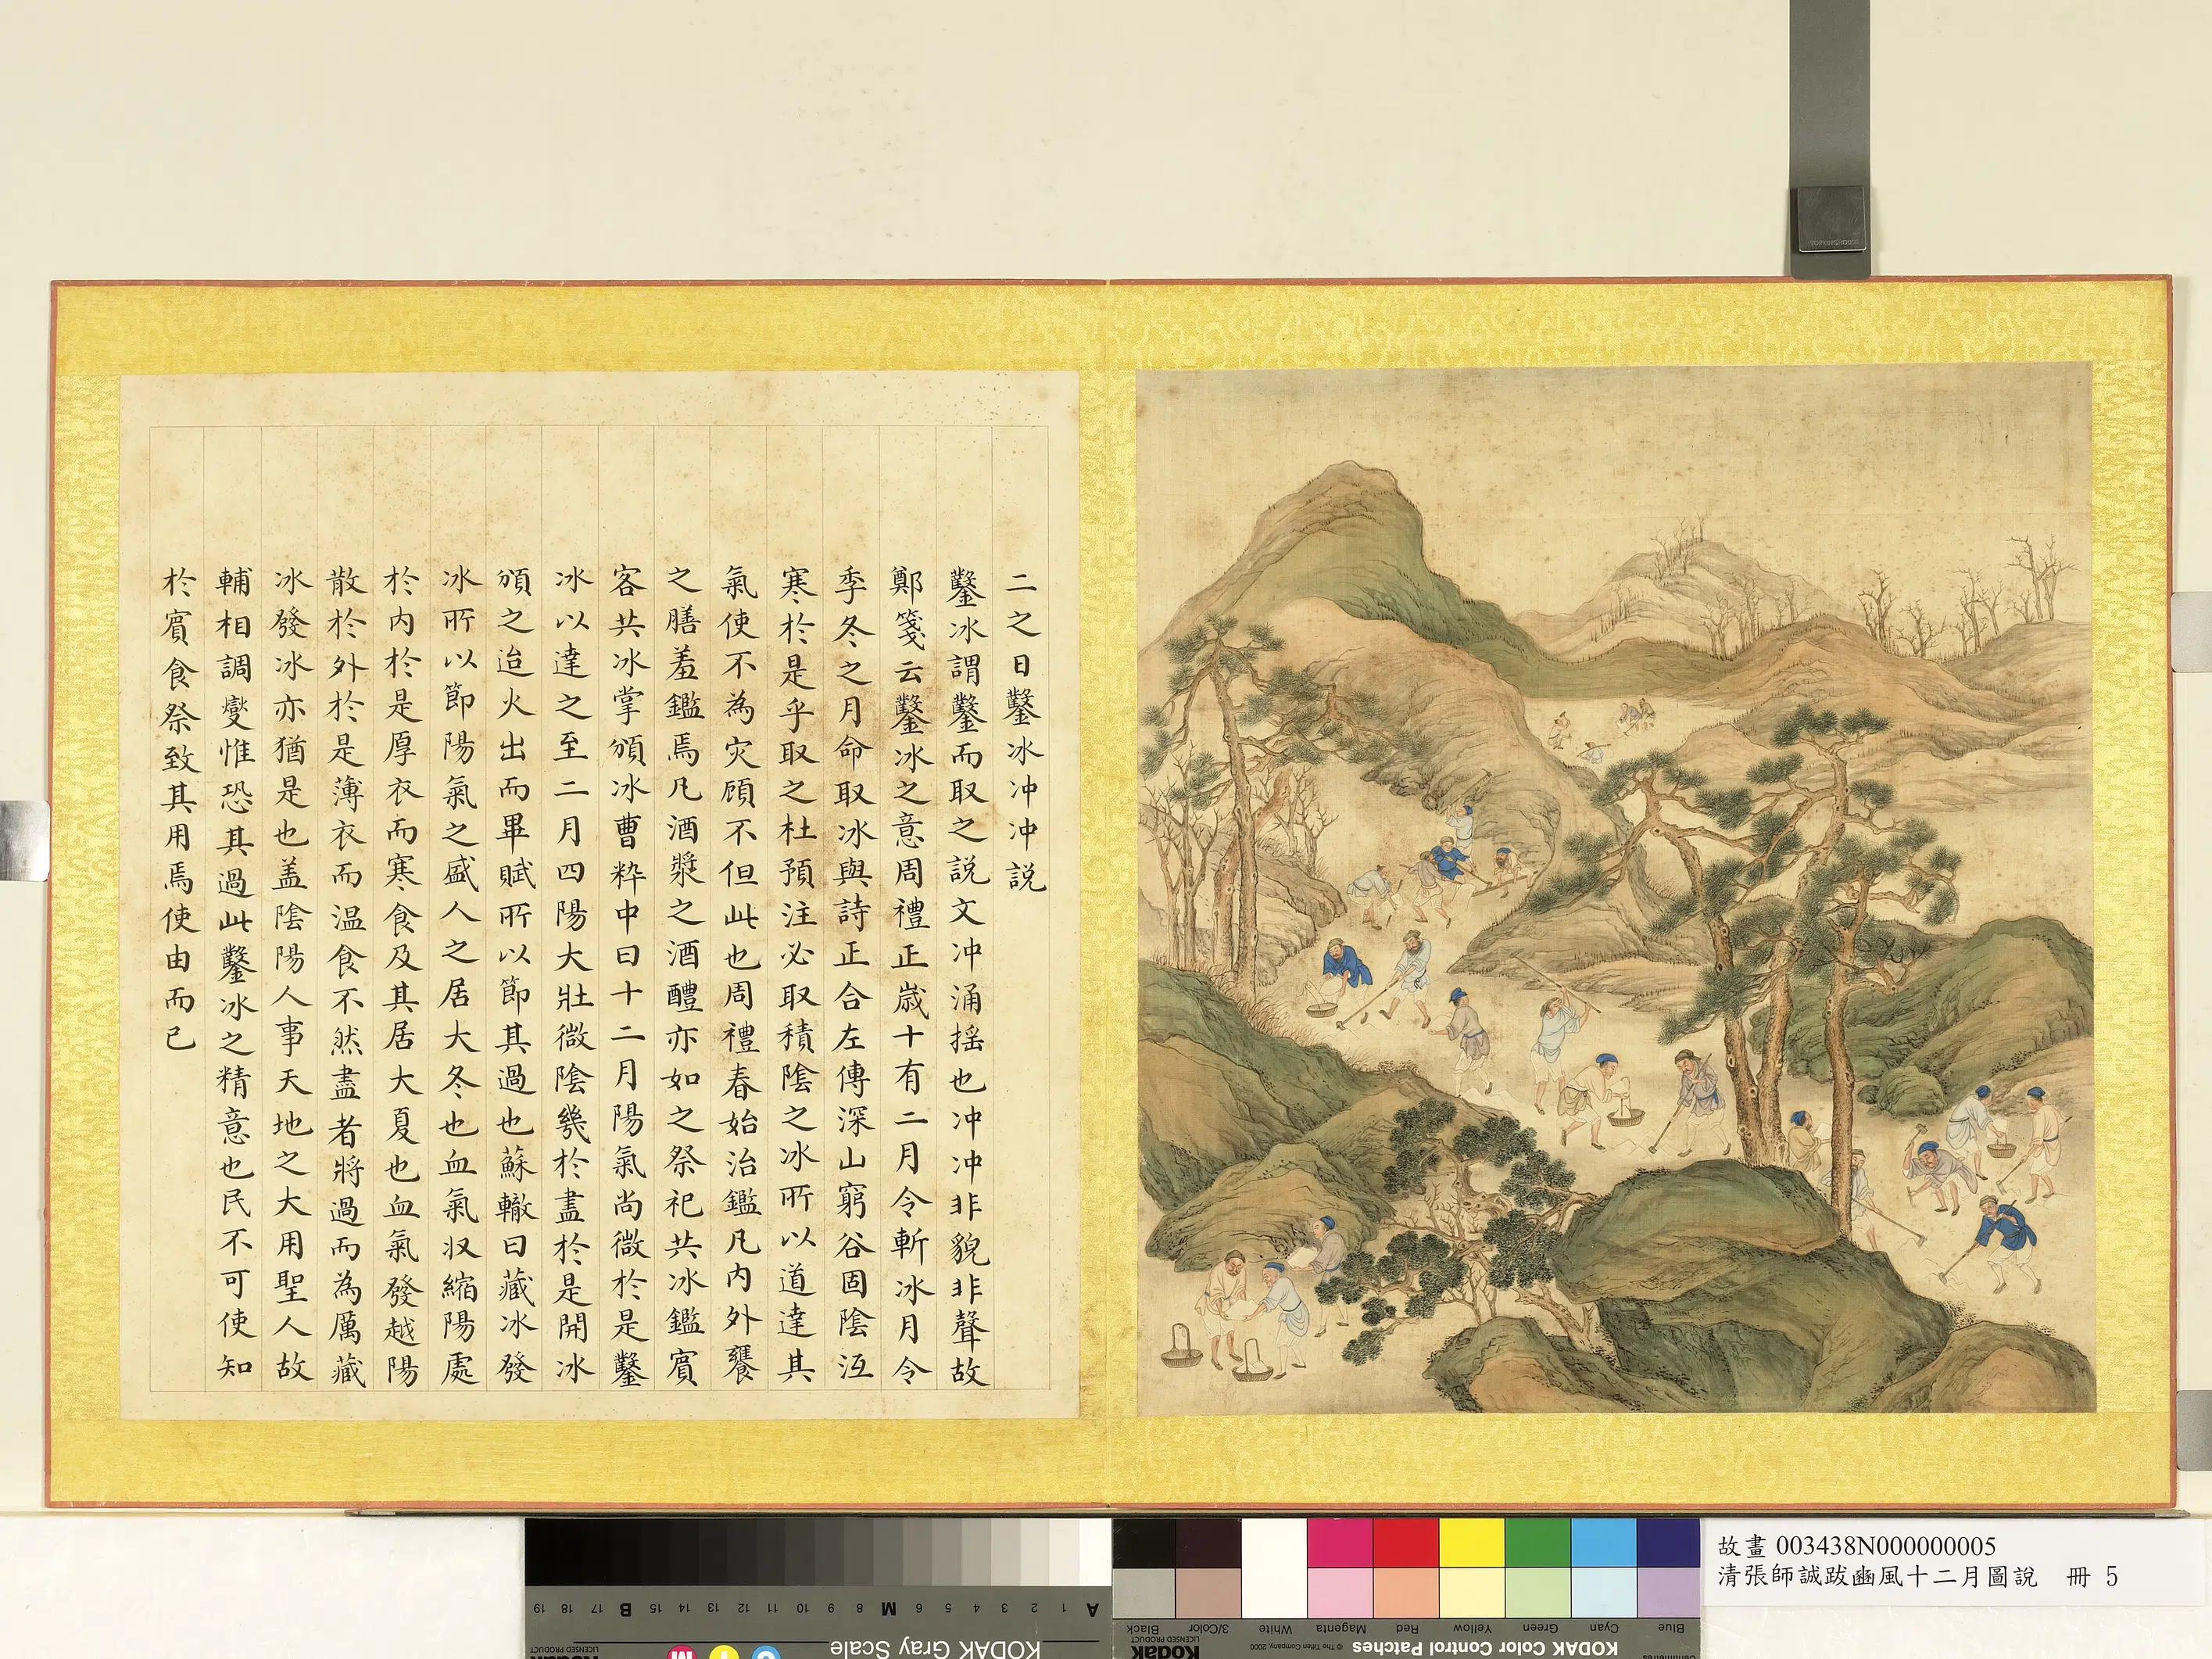 二之日鑿冰冲冲説
鑿冰謂鑿而取之説文冲涌摇也冲冲非貌非聲故
鄭箋云鑿冰之意周禮正歲十有二月令斬冰月令
季冬之月命取冰與詩正合左傳深山窮谷固陰沍
寒於是乎取之杜預注必取積陰之冰所以道達其
氣使不為灾顧不但此也周禮春始治鑑凡内外饔
之膳羞鑑焉凡酒漿之酒醴亦如之祭祀共冰鑑賓
客共冰掌頒冰曹粹中曰十二月陽氣尚微於是鑿
冰以達之至二月四陽大壯微陰幾於盡於是開冰
頒之迨火出而畢賦所以節其過也蘇轍曰藏冰發
冰所以節陽氣之盛人之居大冬也血氣収縮陽處
於内於是厚衣而寒食及其居大夏也血氣發越陽
散於外於是薄衣而温食不然盡者將過而為厲藏
冰發冰亦猶是也盖陰陽人事天地之大用聖人故
輔相調燮惟恐其過此鑿冰之精意也民不可使知
於賓食祭致其用焉使由而已
故畫 003438N000000005
清張師誠跋豳風十二月圖說 冊 5
KODAK Gray Scale
KODAK Color Control Patches
© The Tiffen Company, 2000
Kodak
LICENSED PRODUCT
Blue Cyan Green Yellow Red Magenta White 3/Color Black
A 1 2 3 4 5 6 M 8 9 10 11 12 13 14 15 B 17 18 19